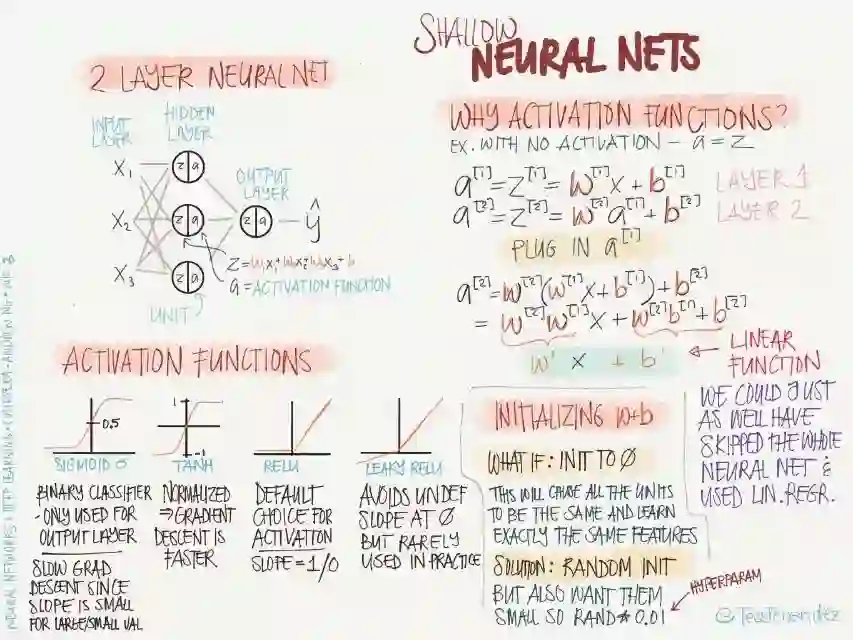 SHALLOW
NEURAL NETS
2 LAYER NEURAL NET
INPUT
LAYER
HIDDEN
LAYER
OUTPUT
LAYER
X₁
X₂
X₃
z a
z a
z a
z a
ŷ
Z = W₁X₁ + W₂X₂ + W₃X₃ + b
a = ACTIVATION FUNCTION
UNIT
ACTIVATION FUNCTIONS
0.5
SIGMOID σ
BINARY CLASSIFIER
- ONLY USED FOR
OUTPUT LAYER
SLOW GRAD
DESCENT SINCE
SLOPE IS SMALL
FOR LARGE/SMALL VAL
1
-1
TANH
NORMALIZED
⇒ GRADIENT
DESCENT IS
FASTER
RELU
DEFAULT
CHOICE FOR
ACTIVATION
SLOPE = 1/0
LEAKY RELU
AVOIDS UNDEF
SLOPE AT 0
BUT RARELY
USED IN PRACTICE
WHY ACTIVATION FUNCTIONS?
EX. WITH NO ACTIVATION - a = Z
a[1] = Z[1] = W[1]X + b[1] LAYER 1
a[2] = Z[2] = W[2]a[1] + b[2] LAYER 2
PLUG IN a[1]
a[2] = W[2](W[1]X + b[1]) + b[2]
= W[2]W[1]X + W[2]b[1] + b[2]
W' X + b'
LINEAR
FUNCTION
WE COULD JUST
AS WELL HAVE
SKIPPED THE WHOLE
NEURAL NET &
USED LIN. REGR.
INITIALIZING W+b
WHAT IF: INIT TO 0
THIS WILL CAUSE ALL THE UNITS
TO BE THE SAME AND LEARN
EXACTLY THE SAME FEATURES
SOLUTION: RANDOM INIT
BUT ALSO WANT THEM
SMALL SO RAND * 0.01
HYPERPARAM
@TessFernandez
NEURAL NETWORKS & DEEP LEARNING · COURSERA · ANDREW NG